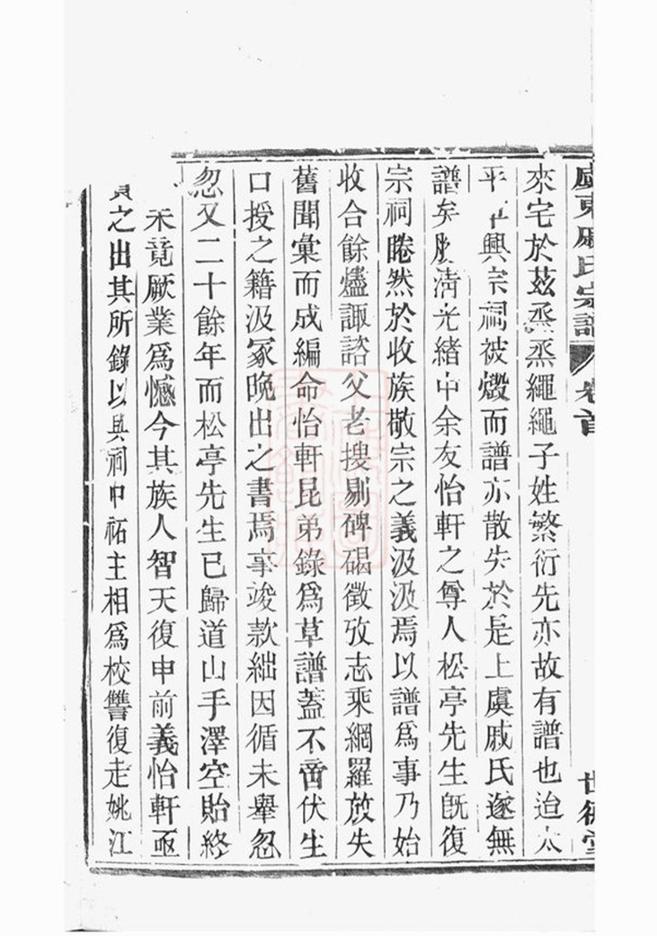 虞東戚氏宗譜 卷首 世德堂
來宅於茲烝烝繩繩子姓繁衍先亦故有譜也迨太
平軍興宗祠被燬而譜亦散失於是上虞戚氏遂無
譜矣勝清光緒中余友怡軒之尊人松亭先生旣復
宗祠睠然於收族敬宗之義汲汲焉以譜爲事乃始
收合餘燼諏諮父老搜剔碑碣徵攷志乘網羅放失
舊聞彙而成編命怡軒昆弟錄爲草譜蓋不啻伏生
口授之籍汲冢晚出之書焉事竣款絀因循未舉忽
忽又二十餘年而松亭先生已歸道山手澤空貽終
未竟厥業爲憾今其族人智天復申前義怡軒亟
贊之出其所錄以與祠中祏主相爲校讐復走姚江